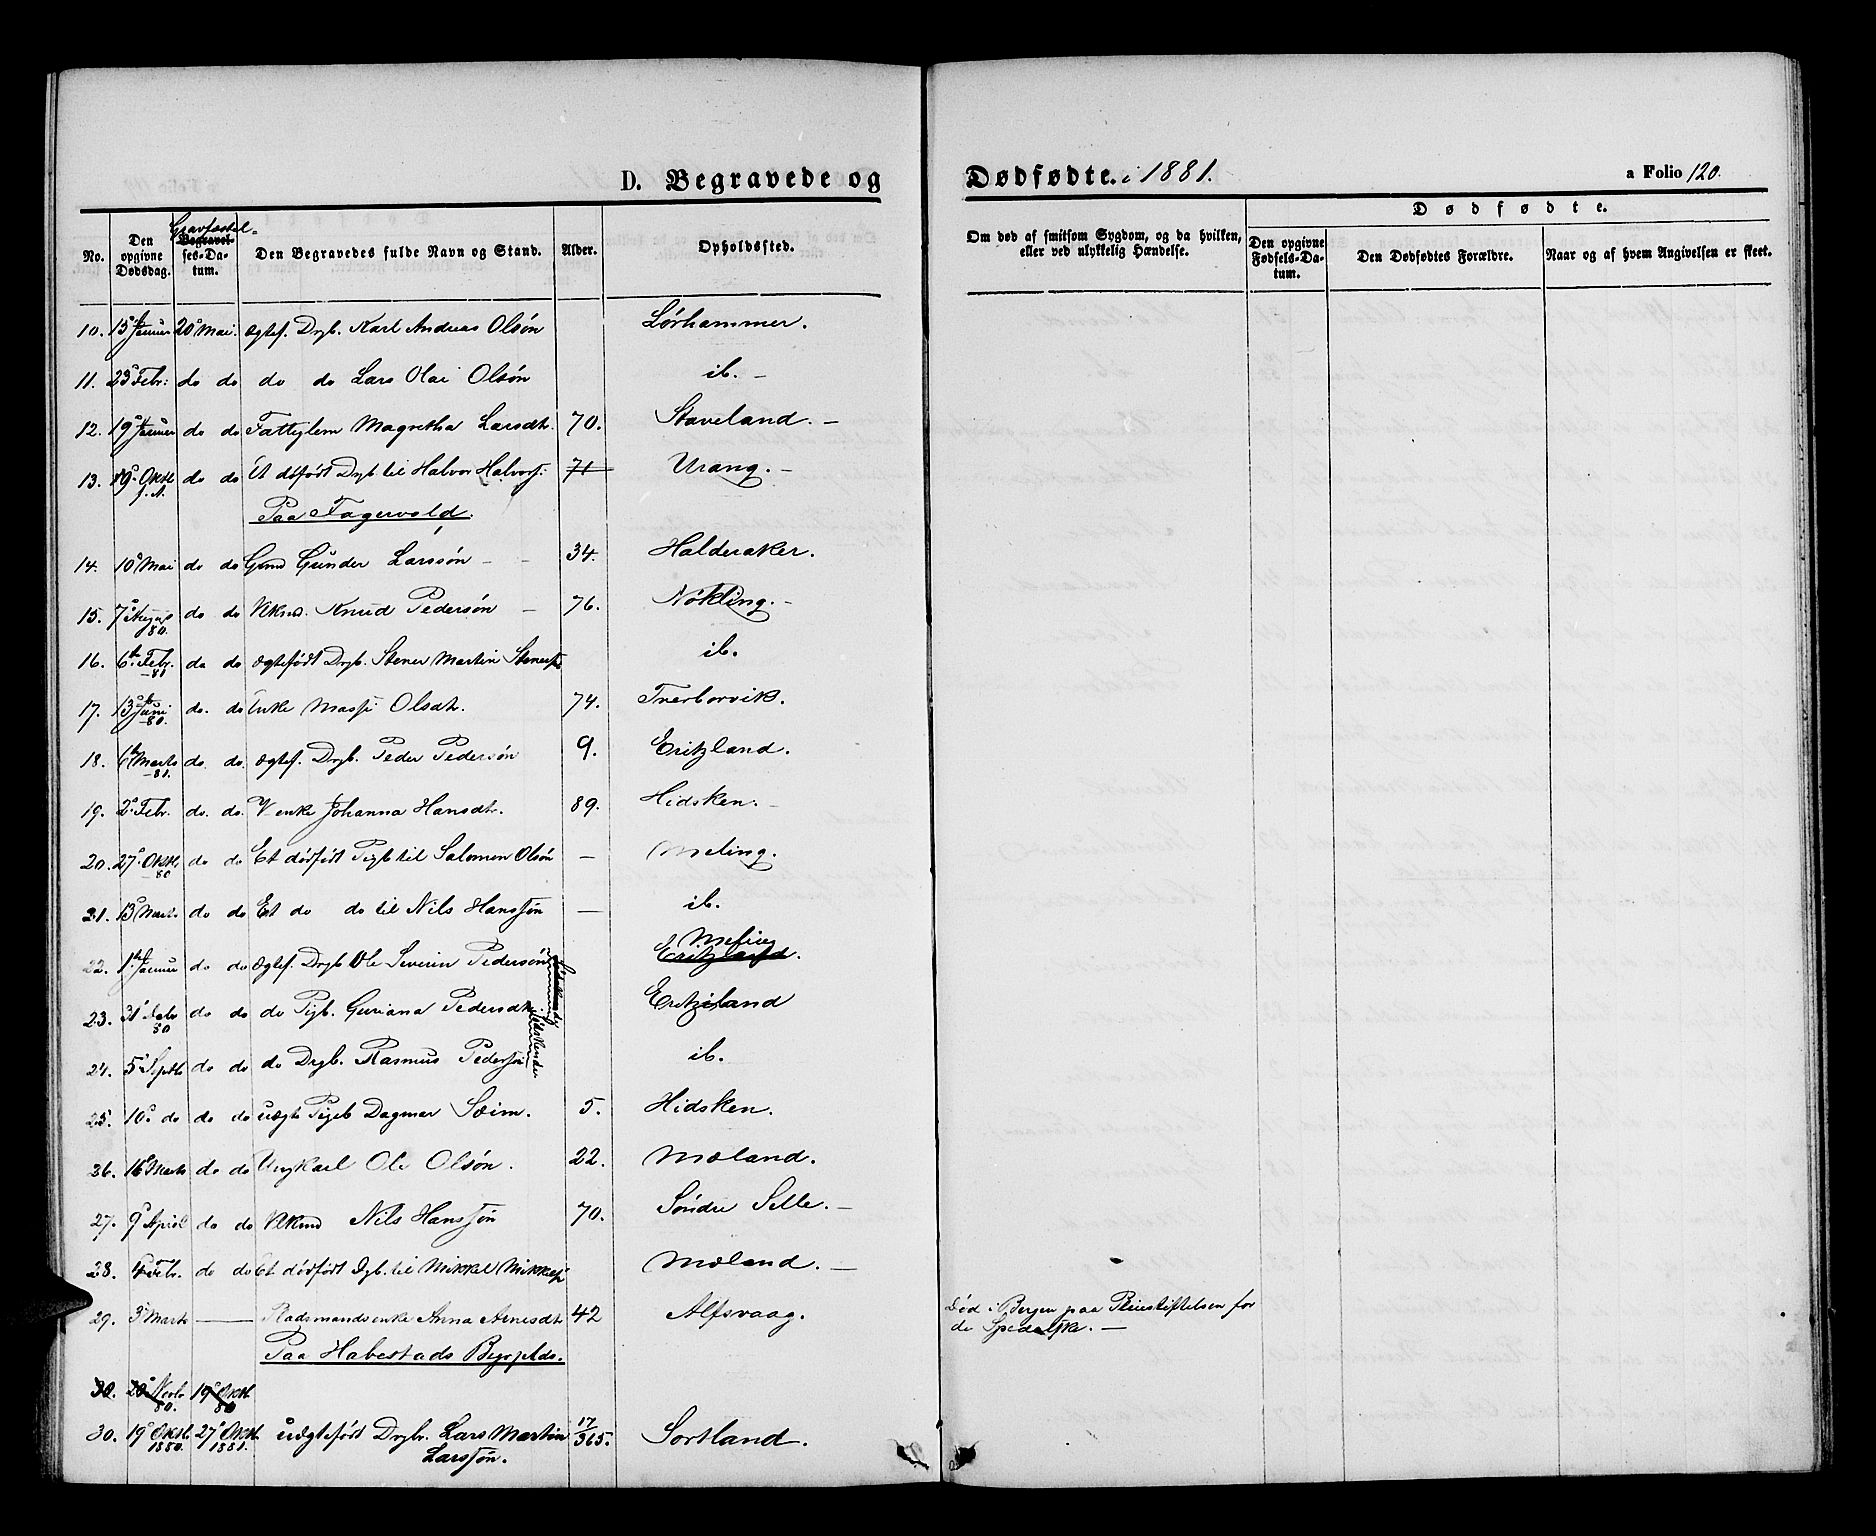 D. Begravede og
Dødfødte. i 1881.
a Folio 120.
No.
Den opgivne Dødsdag.
Gravfæstel=
Begravelses-Datum.
Den Begravedes fulde Navn og Stand.
Alder.
Opholdssted.
Om død af smitsom Sygdom, og da hvilken, eller ved ulykkelig Hændelse.
Dødfødte.
Den opgivne Fødsels-Datum.
Den Dødfødtes Forældre.
Naar og af hvem Angivelsen er skeet.
10. 15 Januar 20 Mai. Ægtef. Drgb. Karl Andreas Olsøn Lørhammer.
11. 23 Febr: do do do do Lars Olai Olsøn ib. -
12. 19 Januar do do Fattiglem Magretha Larsdtr. 70. Staveland. -
13. 19 Oktb. f. A. do do Et dødfødt Drgb til Halvor Halvors: 71 Urang. -
Paa Fagervold.
14. 10 Mai do do Gmd Gunder Larssøn - - 34. Halderaker.
15. 7 80. do do Vkmd. Knud Pedersøn - 76. Nøkling. -
16. 6te Febr. -81 do do ægtefødt Drgb. Stener Martin Steners. ib.
17. 13 Juni -80. do. do Enke Massi Olsdtr. 74. Tverborvik.
18. 6te Marts -81. do. do. ægtef. Drgb. Peder Pedersøn 9. Eritzland.
19. 2 Febr. do. do. Venke Johanna Hansdtr. 89. Hidsken. -
20. 27 Oktb. 80 do do Et dødfødt Pigb til Salomon Olsøn — Meling.
21. 13 Marts do do Et do do til Nils Hanssøn — ib.
22. 1ste Januar do do Ægtef. Drgb Ole Severin Pedersøn Eritzland.
23. 31 Febr 80 do do do Pigb. Guriana Pedersdtr Eritzland
24. 5 Septb do do do Drgb. Rasmus Pederssøn Sødskende ib.
25. 10. do do do uægte Pigeb Dagmar Sæim. 5. Hidsken.
26. 16 Marts do do Ungkarl Ole Olsøn. 22. Mæland.
27. 9 April do do Vkmd Nils Hanssøn 70. Søndre Selle. -
28. 4 Febr. do do Et dødfødt Dgb. til Mikkel Mikkels. Mæland. —
29. 3 Marts — Pladsmandsenke Anna Arnesdtr 42 Alfsvaag. Død i Bergen paa Pleiestiftelsen for
de Spedalske. —
Paa Habestads Begrplds.
30. 20 Novb 80. 19 Oktb. 80
30. 19 Oktb. 1880. 27 Oktb. 1881. uægtefødt Drgbr. Lars Martin 17/365. Sortland.
Larssøn.